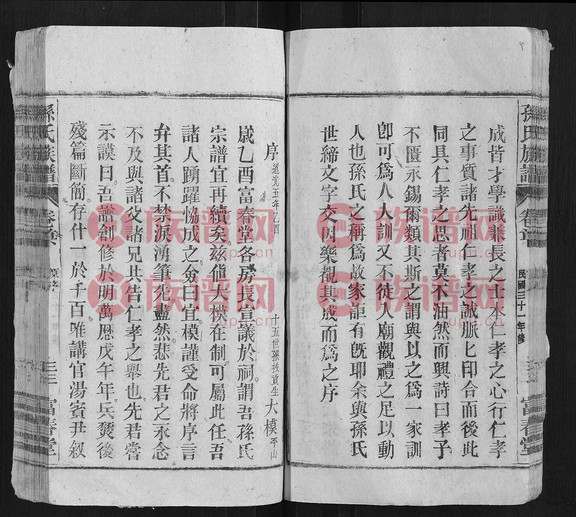 孫氏族譜
卷首
民國三十一年修
富春堂
成皆才學識兼長之士本仁孝之心行仁孝
之事質諸先祖仁孝之誠脈匕印合而後此
同具仁孝之思者莫不油然而興詩曰孝子
不匱永錫爾類其斯之謂與以之為一家訓
卽可為人人訓又不徒人廟觀禮之足以動
人也孫氏之稱為故家詎有旣耶余與孫氏
世締文字交因樂觀其成而為序
序 道光五年乙酉
十五世孫 貢生 大模
歲乙酉富春堂各房長僉議於祠謂吾孫氏
宗譜宜再續矣茲值大模在制可屬此任吾
諸人踴躍協成之僉曰宜模謹受命將序言
弁其首不禁淚湧筆 盡然悲先君之永念
不及與諸父諸兄共告仁孝之舉也先君嘗
示謨曰吾譜創修於明萬歷戊午年兵燹後
殘篇斷簡存什一於千百唯講官湯賓尹叙
孫氏族譜
卷首
富春堂
族谱网